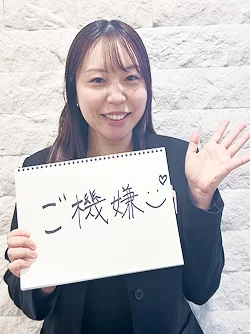 ご機嫌